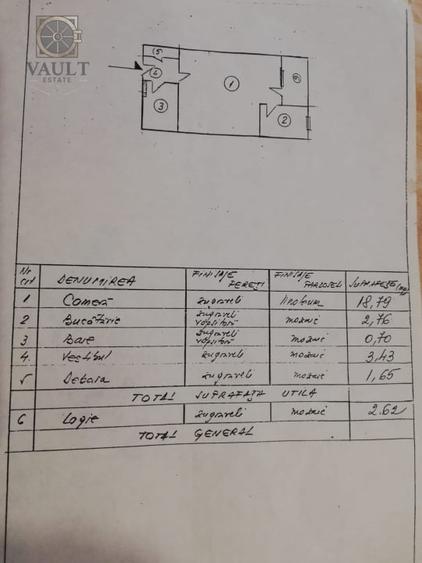 VAULT
ESTATE
5
4
1
6
3
2
Nr crt DENUMIREA FINISAJE PEREȚI FINISAJE PARDOSELI SUPRAFEȚE (mp)
1 Cameră zugraveli linoleum 18,79
2 Bucătărie zugraveli vopsitorii mozaic 2,76
3 Baie zugraveli vopsitorii mozaic 0,70
4. Vestibul zugraveli mozaic 3,43
5 Debara zugraveli mozaic 1,65
TOTAL SUPRAFAȚA UTILA
6 Logie zugraveli mozaic 2.62
TOTAL GENERAL